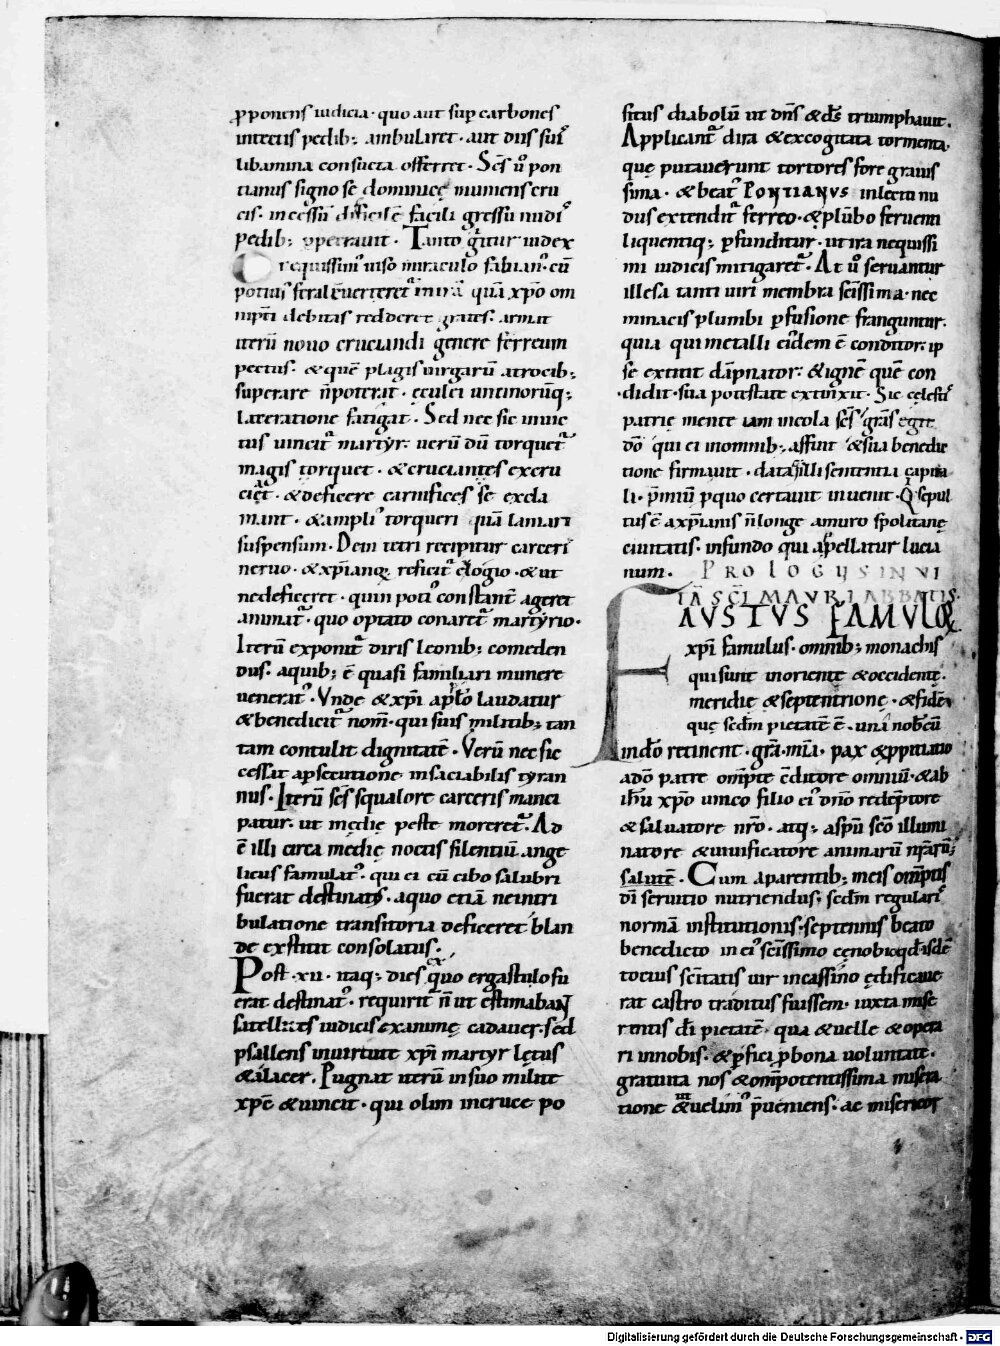 p̱ponens iudicia · quo aut sup carbones
iniectis pedib; ambularet · aut diis suis
libamina consueta offerret · Scs ū pon
tianus signo se dominicę muniens cru
cis · incessū difficilē facili gressu nudis
pedib; operauit · Tanto gͥtur iudex
nequissim' uiso miraculo fabian' · cū
potius
mpti debitas redderet grates · armat
iterū nouo cruciandi genere ferreum
pectus · & quē plagis uirgarū atrocib;
superare n̄ poterat · eculei uncinorūq;
laceratione fatigat · Sed nec sic inuic
tus uincit' martyr · uerū dū torquet'
magis torquet · & cruciantes excru
ciat · & deficere carnifices se excla
mant · & ampli' torqueri quā laniari
suspensum · Dein tetri recipitur carceri
neruo · & xp̄ianoq; reficit' elogio · & ut
nedeficeret · quin poti' constant̄ ageret
animat' · quo optato conaret' martyrio ·
Iterū exponit' diris leonib; comeden
dus · a quib; ē quasi familiari munere
uenerat' · Vnde & xp̄i ap̄lō laudatur
& benedicit' nom̄ · qui suis militib; tan
tam contulit dignitatē · Verū nec sic
cessat a p̱secutione insaciabilis tyran
nus · Iterū scs squalore carceris manci
patur · ut medię peste moreret' · Ad
ē illi circa medię noctis silentiū ange
licus famulat' · qui ei cū cibo salubri
fuerat destinat' · a quo etiā ne in tri
bulatione transitoria deficeret blan
de exstitit consolatus ·
Post · xii · itaq; dies ex quo ergastulo fu
erat destinat' · requirit' n̄ ut estimabant
satellites iudicis exanimę cadauer · sed
psallens in uirtute xp̄i martyr lętus
& alacer · Pugnat iterū in suo milite
xp̄c & uincit · qui olim in cruce po
situs diabolū ut dn̄s & ds̄ triumphauit ·
Applicant' dira & excogitata tormenta ·
quę putauerunt tortores fore grauis
sima · & beat' PONTIANVS in lecto nu
dus extendit' ferreo · & plūbo feruenti
liquentiq; p̱funditur · ut ira nequissi
mi iudicis mitigaret' · At ū seruantur
illesa tanti uiri membra scīssima · nec
minacis plumbi p̱fusione franguntur ·
quia qui metalli eidem ē conditor · ip
se extitit dāpnator · & ignē quē con
didit · sua potestate extinxit · Sic celesti
patrie mente iam incola scs grās egit
dō qui ei in omnib; affuit & sua benedic
tione firmauit · data illi sententia capita
li · p̄miū p̱ quo certauit inuenit · Q' sepul
tus ē a xp̄ianis n̄ longe a muro spolitane
ciuitatis · in fundo qui appellatur lucia
num · PROLOGUS IN VI
TĀ SCĪ MAVRI ABBATIS ·
FAVSTVS FAMVLOR
xp̄i famulus · omnib; monachis
qui sunt in oriente & occidente ·
meridie & septentrione · & fidē
quę scdm pietatē ē · unā nobcū
in dō retinent · grā · mīa · pax & p̱pitiatio
a dō patre omp̄te c̄ditore omniū · & ab
ihū xp̄o unico filio ei' dn̄o redēptore
& saluatore nr̄o · atq; a sp̄u scō illumi
natore & uiuificatore animarū nr̄arū ·
salutē · Cum a parentib; meis omp̄tis
dī seruitio nutriendus · scdm regularē
normā institutionis · septennis beato
benedicto in ei' scīssimo cenobio qd isdē
tocius scītatis uir in cassino ędificaue
rat castro traditus fuissem · iuxta mise
rentis dī pietatē · qua & uelle & opera
ri in nobis · & p̱fici p̱ bona uoluntate ·
gratuita nos & omp̄otentissima misera
tione & uelim' p̄ueniens · ac misericor
Digitalisierung gefördert durch die Deutsche Forschungsgemeinschaft · DFG